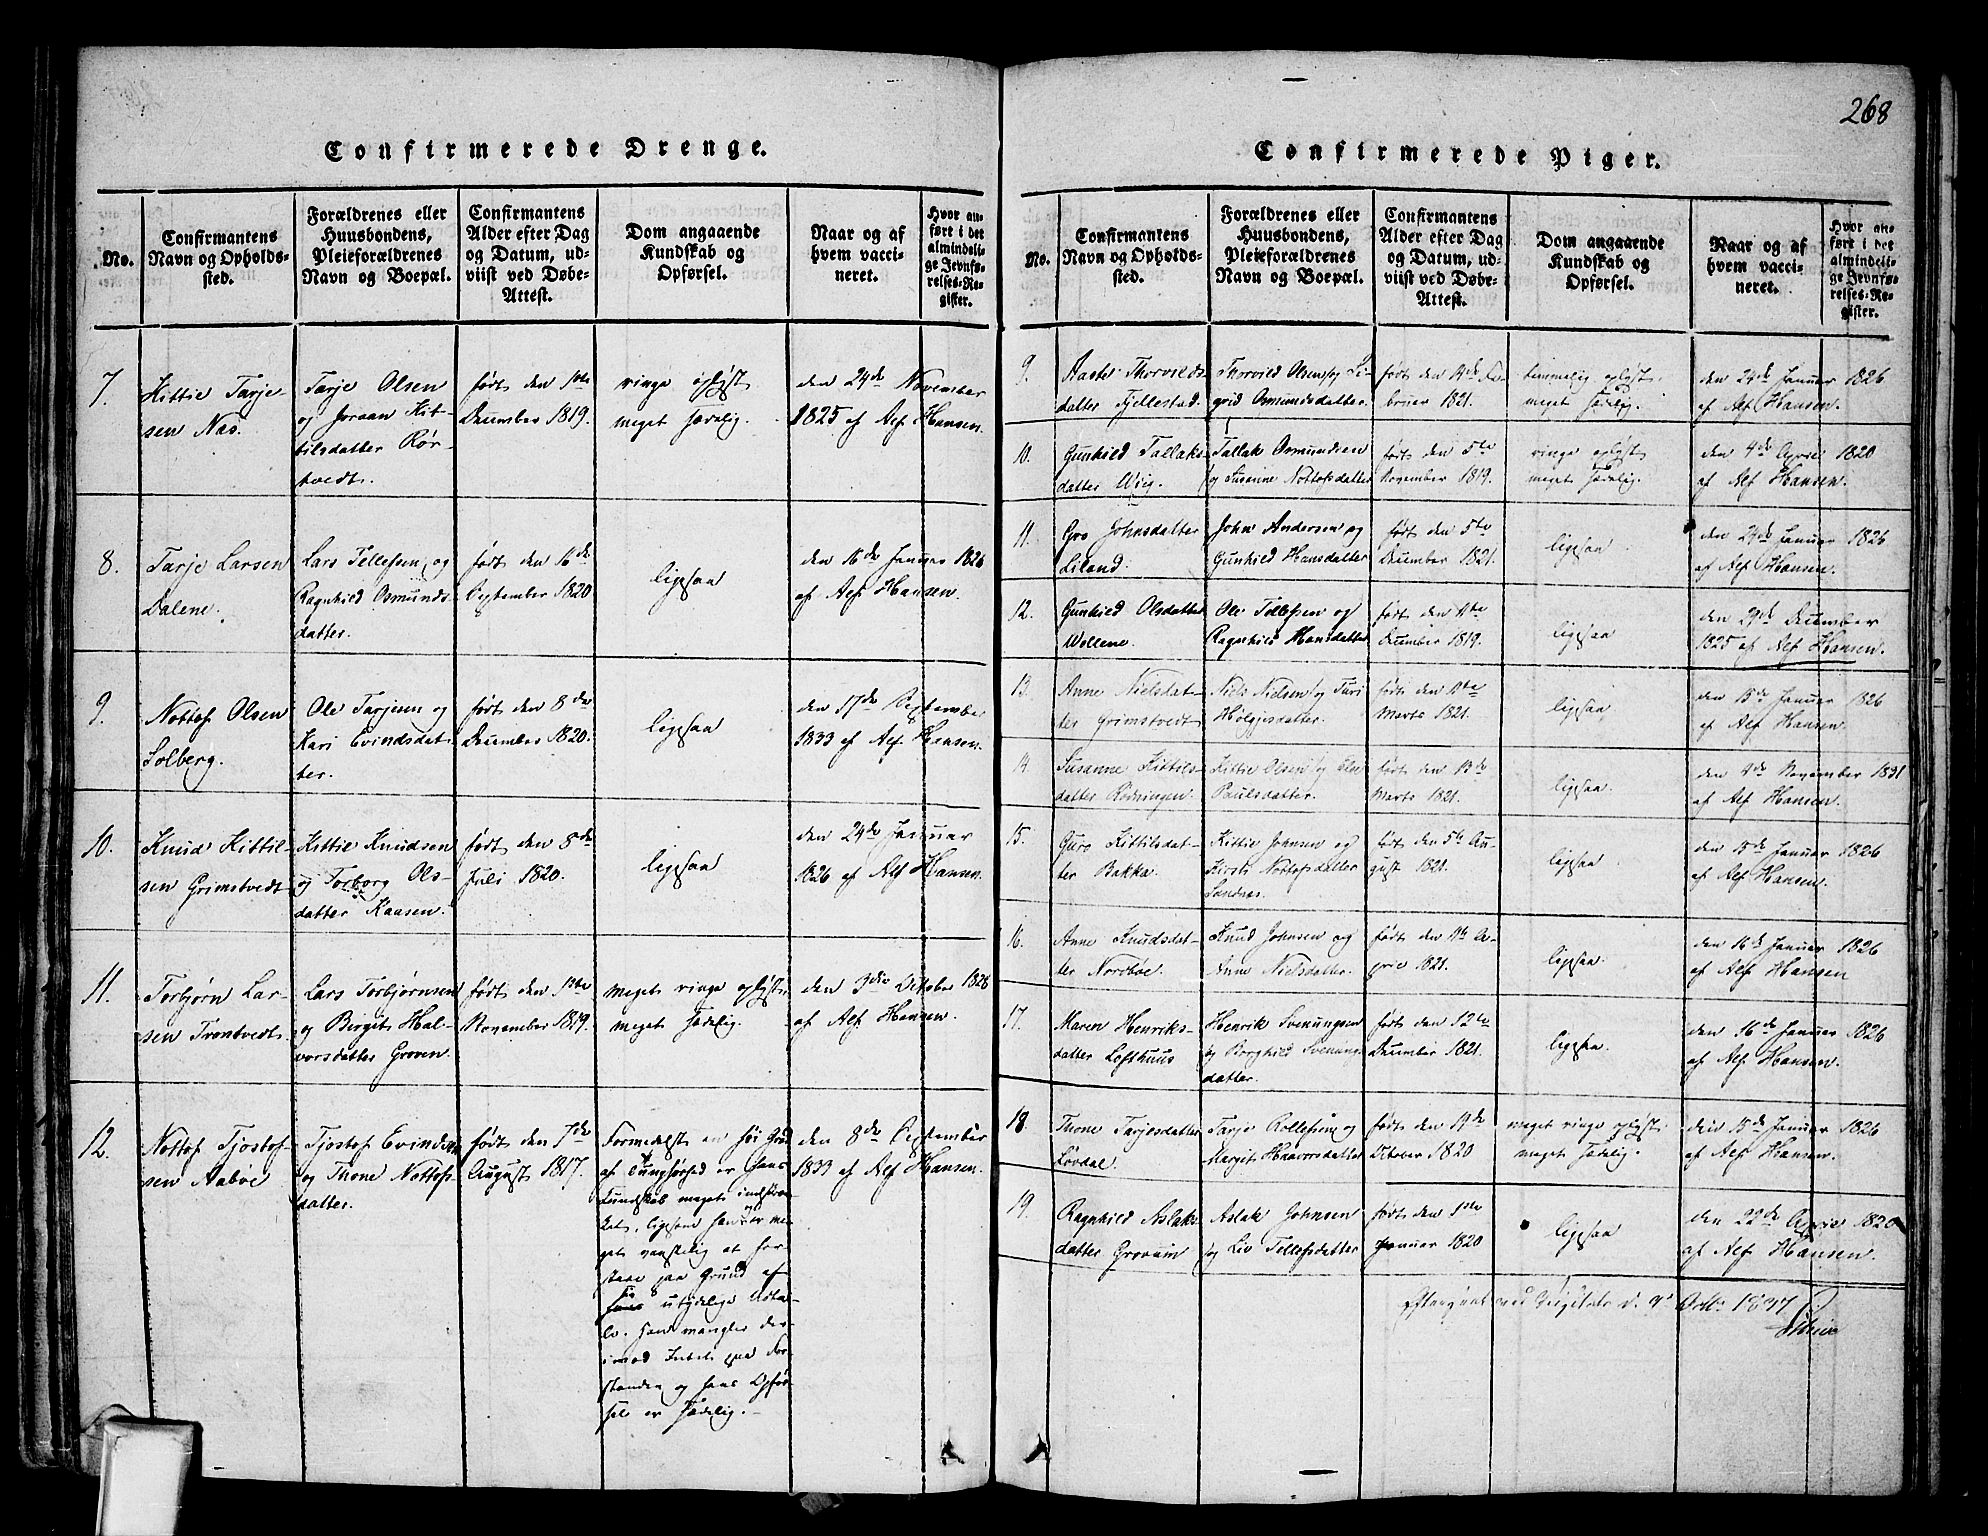 268
Confirmerede Drenge.
No.
Confirmantens
Navn og Opholds-
sted.
Forældrenes eller
Huusbondens,
Pleieforældrenes
Navn og Boepæl.
Confirmantens
Alder efter Dag
og Datum, ud-
viist ved Døbe-
Attest.
Dom angaaende
Kundskab og
Opførsel.
Naar og af
hvem vacci-
neret.
Hvor an-
ført i det
almindeli-
ge Jevnfø-
relses-Re-
gister.
7.
Kittil Tarje-
sen Næs.
Tarje Olsen
og Joraan Kit-
tilsdatter Rør-
tvedt.
født den 1ste
December 1819.
ringe oplyst
meget sædelig.
den 24de November
1825 af Alf Hansen.
8.
Tarje Larsen
Dalene.
Lars Tellefsen og
Ragnhild Osmunds-
datter.
født den 16de
September 1820
ligesaa
den 16de Januar 1826
af Alf Hansen.
9.
Nottof Olsen
Solberg.
Ole Tarjesen og
Kari Evindsdat-
ter.
født den 8de
December 1820.
ligesaa
den 17de September
1833 af Alf Hansen.
10.
Knud Kittil-
sen Grimstvedt
Kittil Knudsen
og Torborg Ols-
datter Kaasen.
født den 8de
Juli 1820.
ligesaa
den 24de Januar
1826 af Alf Hansen.
11.
Torbjørn Lar-
sen Trontvedt.
Lars Torbjørnsen
og Birgit Hal-
vorsdatter Groven.
født den 1ste
November 1819.
meget ringe oplyst,
meget sædelig.
den 3die October 1828
af Alf Hansen.
12.
Nottof Tjostof-
sen Aabøe
Tjostof Evindsen
og Thone Nottofs-
datter.
født den 7de
August 1817.
Formedelst en høi Grad
af Tunghørhed er hans
Kundskab meget indskræn-
ket, ligesom han er me-
get vanskelig at for-
staae paa Grund af
utydelige Udta-
le. han mangler der-
imod Intet paa For-
standen og hans Opfør-
sel er sædelig.
den 8de September
1833 af Alf Hansen.
Confirmerede Piger.
No.
Confirmantens
Navn og Opholds-
sted.
Forældrenes eller
Huusbondens,
Pleieforældrenes
Navn og Boepæl.
Confirmantens
Alder efter Dag
og Datum, ud-
viist ved Døbe-
Attest.
Dom angaaende
Kundskab og
Opførsel.
Naar og af
hvem vacci-
neret.
Hvor an-
ført i det
almindeli-
ge Jevnfø-
relses-Re-
gister.
9.
Aaste Thorvilds-
datter Fjellestad.
Thorvild Olsen og Si-
grid Osmundsdatter.
født den 4de Fe-
bruar 1821.
temmelig oplyst,
meget sædelig.
den 24de Januar 1826
af Alf Hansen.
10.
Gunhild Tallaks-
datter Wiig.
Tallak Osmundsen
og Susanne Nottofsdatter
født den 5te
November 1819.
ringe oplyst
meget sædelig.
den 4de April 1820
af Alf Hansen.
11.
Gro Johnsdatter
Liland.
John Andersen og
Gunhild Hansdatter
født den 5te
December 1821.
ligesaa
den 24de Januar 1826
af Alf Hansen.
12.
Gunhild Olsdatter
Wollene.
Ole Tellefsen og
Ragnhild Hansdatter
født den 11te
December 1819.
ligesaa
den 29de December
1825 af Alf Hansen.
13.
Anne Nielsdat-
ter Grimstvedt
Niels Nielsen og Turi
Helgjesdatter.
født den 11te
Marts 1821.
ligesaa
den 15de Januar 1826
af Alf Hansen.
14.
Susanne Kittils-
datter Rødningen.
Kittil Olsen og Else
Paulsdatter.
født den 13de
Marts 1821.
ligesaa.
den November 1831
af Alf Hansen.
15.
Guro Kittilsdat-
ter Bakka.
Kittil Johnsen og
Kirsti Nottofsdatter
Sandnæs.
født den 5te Au-
gust 1821.
ligesaa.
den 15de Januar 1826
af Alf Hansen.
16.
Anne Knudsdat-
ter Nordbøe.
Knud Johnsen og
Anne Nielsdatter.
født den 11te A-
pril 1821.
ligesaa.
den 16de Januar 1826
af Alf Hansen
17.
Maren Henriks-
datter Lofthuus
Henrik Svenungsen
og Borghild Svenungs-
datter.
født den 12te
December 1821.
ligesaa.
den 16de Januar 1826
af Alf Hansen.
18.
Thone Tarjesdatter
Løvdal.
Tarje Rollefsen og
Margit Haavorsdatter
født den 19de
October 1820
meget ringe oplyst,
meget sædelig.
den 15de Januar 1826
af Alf Hansen.
19.
Ragnhild Aslaks-
datter Groven
Aslak Johnsen
og Liv Tellefsdatter
født den 1ste
Januar 1820
ligesaa
den 22de April 1820
af Alf Hansen.